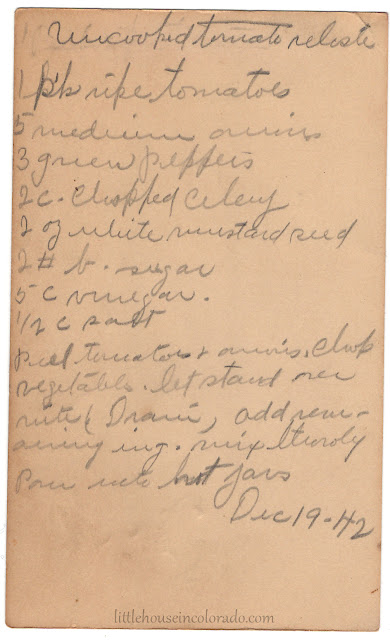 Uncooked tomato relish
1 pk ripe tomatoes
5 medium onions
3 green peppers
2 c. chopped celery
2 oz white mustard seed
2 # b. sugar
5 c vinegar.
1/2 c salt
Peel tomatoes & onions. Chop
vegetables. let stand over
nite (Drain), add rem-
aining ing. mix
Pour into hot jars
Dec 19-42
littlehouseincolorado.com